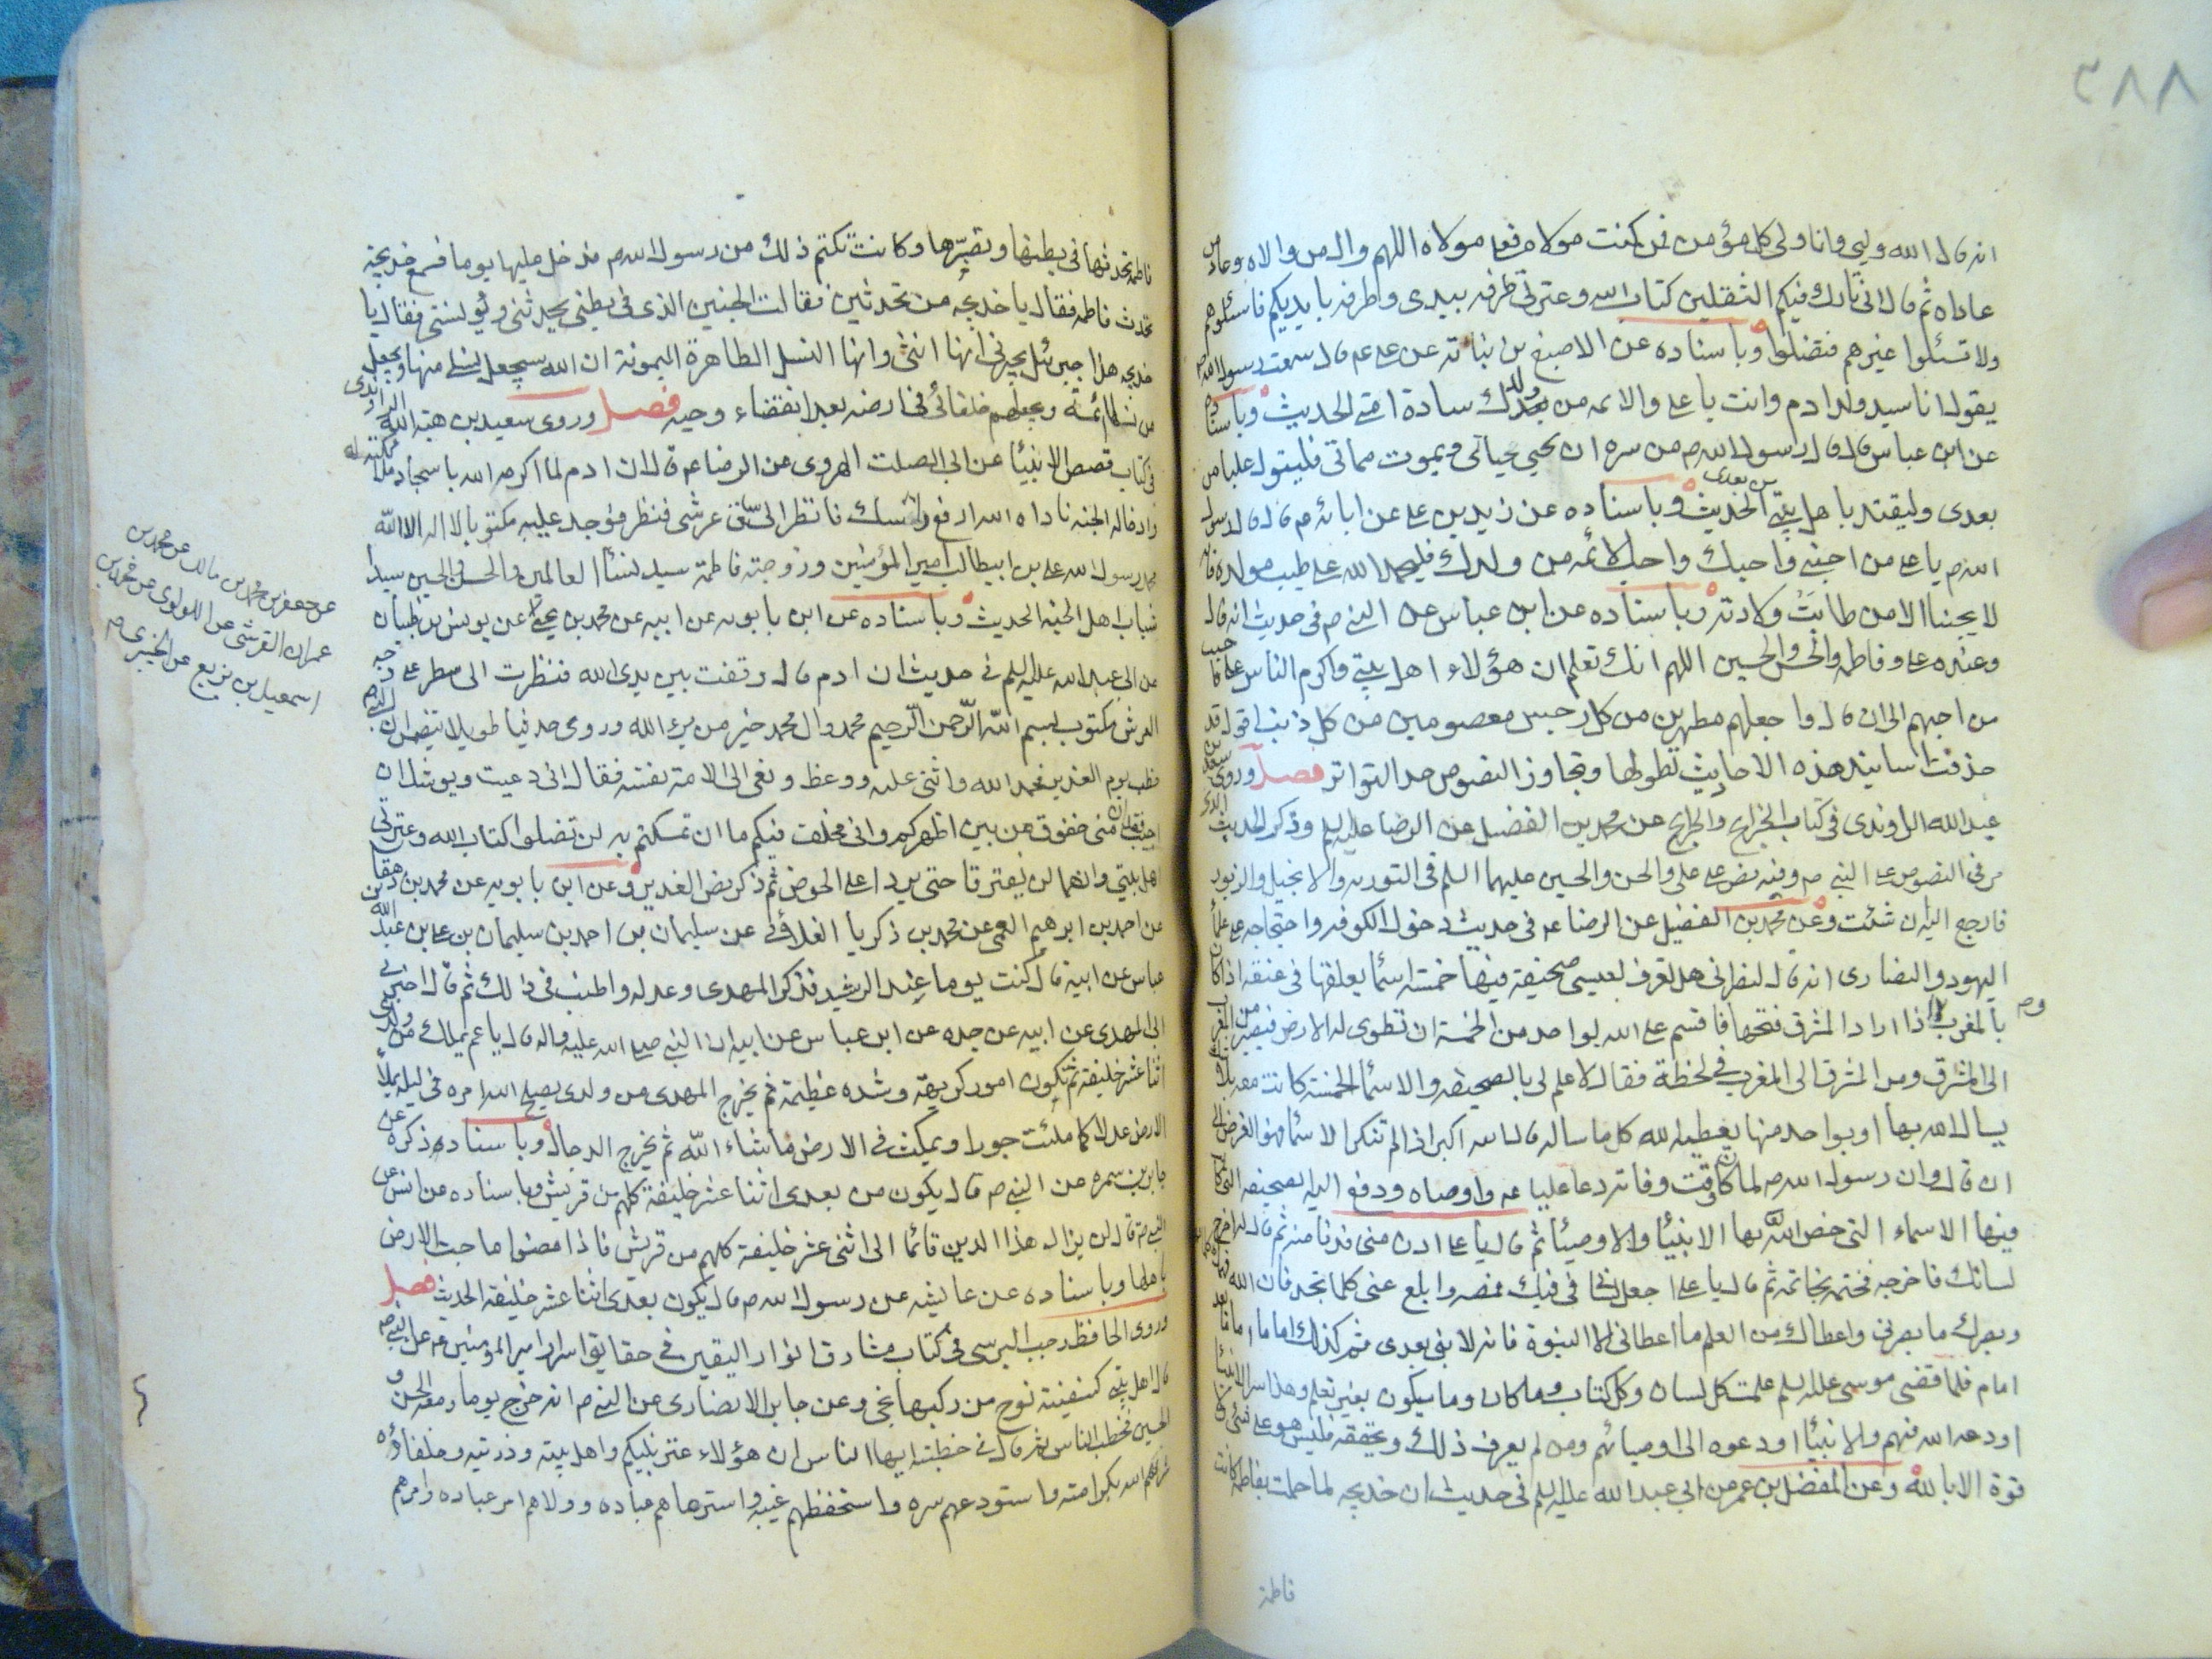 ٢٨٨
انه قال الله وليي وانا ولي كل مؤمن فمن كنت مولاه فعلي مولاه اللهم وال من والاه وعاد من
عاداه ثم قال اني تارك فيكم الثقلين كتاب الله وعترتي طرفه بيدي وطرفه بايديكم فاسئلوهم
ولا تسئلوا غيرهم فتضلوا وباسناده عن الاصبغ بن نباته عن علي ع قال سمعت رسول الله ص
يقول انا سيد ولد ادم وانت يا علي والائمه من بعدك سادة امتي الحديث وباسناده
عن ابن عباس قال قال رسول الله ص من سره ان يحيي حياتي ويموت مماتي فليتول عليا من
بعدى وليقتد باهل بيتي من بعدى الحديث وباسناده عن زيد بن علي عن ابائه ع قال قال رسول
الله ص يا علي من احبني واحبك واحب الائمه من ولدك فليحمد الله على طيب مولده فانه
لا يحبنا الا من طابت ولادته وباسناده عن ابن عباس عن النبي ص في حديث انه قال
وعنده علي وفاطمه والحسن والحسين اللهم انك تعلم ان هؤلاء اهل بيتي واكرم الناس علي فاحبب
من احبهم الى ان قال واجعلهم مطهرين من كل رجس معصومين من كل ذنب اقول قد
حذفت اسانيد هذه الاحاديث لطولها وتجاوز النصوص حد التواتر فصل وروى سعيد بن
عبد الله الراوندى في كتاب الخرايج والجرايح عن محمد بن الفضيل عن الرضا عليه السلم وذكر الحديث الذى
مر في النصوص على النبي ص وفيه نص على علي والحسن والحسين عليهما السلم في التوريه والانجيل والزبور
فارجع اليه ان شئت وعن محمد بن الفضيل عن الرضا ع في حديث دخول الكوفه واحتجاجه على علماء
اليهود والنصارى انه قال لنصراني هل تعرف لعيسى صحيفة فيها خمسة اسماء يعلقها في عنقه اذا كان
بالمغرب فاذا اراد المشرق فتحها فاقسم على الله بواحد من الخمسة ان تطوى له الارض فيصير من المغرب
الى المشرق ومن المشرق الى المغرب في لحظة فقال لا علم لي بالصحيفه والاسماء الخمسة كانت معه بلا شك
يسال الله بها او بواحد منها يعطيه الله كل ما ساله قال الله اكبر اذا لم تنكر الاسماء فهو الغرض الى
ان قال وان رسول الله ص لما كان وقت وفاته دعا عليا ع واوصاه ودفع اليه الصحيفه التي كان
فيها الاسماء التي خص الله بها الانبياء والاوصياء ثم قال يا علي ادن مني فدنا منه ثم قال له اخرج
لسانك فاخرجه فختمه بخاتمه ثم قال يا علي اجعل لساني في فيك فمصه وابلع عني كلما تجد فان الله فهمك
وبصرك ما بصرني واعطاك من العلم ما اعطاني الا النبوة فانه لا نبي بعدى ثم كذلك اماما بعد
امام فلما قضى موسى عليه السلم علمت كل لسان وكل كتاب وما كان وما سيكون بغير تعلم وهذا سر الانبياء
اودعه الله فيهم والانبياء اودعوه الى اوصيائهم ومن لم يعرف ذلك ويحققه فليس هو على شيء ولا
قوة الا بالله وعن المفضل بن عمر عن ابي عبد الله عليه السلم في حديث ان خديجه لما حملت بفاطمه كانت
فاطمة
فاطمة تحدثها في بطنها وتصبّرها وكانت تكتم ذلك من رسول الله ص فدخل عليها يوما فسمع خديجة
تحدث فاطمه فقال يا خديجه من تحدثين فقالت الجنين الذى في بطني يحدثني ويؤنسني فقال يا
خديجه هذا جبرئيل يخبرني انها انثى وانها النسل الطاهرة الميمونة ان الله سيجعل نسلي منها ويجعل
من نسلها ائمة ويجعلهم خلفائي في ارضه بعد انقضاء وحيه فصل وروى سعيد بن هبة الله الراوندى
في كتاب قصص الانبياء عن ابي الصلت الهروى عن الرضا ع قال ان ادم لما اكرمه الله باسجاد ملائكته له
وادخاله الجنه ناداه الله ارفع راسك فانظر الى ساق عرشى فنظر فوجد عليه مكتوبا لا اله الا الله
محمد رسول الله علي بن ابيطالب امير المؤمنين وزوجته فاطمة سيد نساء العالمين والحسن والحسين سيدا
شباب اهل الجنه الحديث وباسناده عن ابن بابويه عن ابيه عن محمد بن يحيى عن يونس بن ظبيان
عن جعفر بن محمد بن مالك عن محمد بن
عمران القرشى عن اللولوى عن محمد بن
اسمعيل بن بزيع عن الخيبرى ص
عن ابي عبد الله عليه السلم في حديث ان ادم قال وقفت بين يدى الله فنظرت الى سطر على وجه
العرش مكتوب بسم الله الرحمن الرحيم محمد وال محمد خير من برء الله وروى حديثا طويلا يتضمن ان النبي ص
خطب يوم الغدير فحمد الله واثنى عليه ووعظ ونعى الى الامة نفسه فقال اني دعيت ويوشك ان
اجيب فقد حان مني خفوق من بين اظهركم واني مخلف فيكم ما ان تمسكتم به لن تضلوا كتاب الله وعترتي
اهل بيتي وانهما لن يفترقا حتى يردا علي الحوض ثم ذكر نص الغدير وعن ابن بابويه عن محمد بن دهقان
عن احمد بن ابرهيم العمى عن محمد بن زكريا الغلابي عن سليمان بن احمد بن سليمان بن علي بن عبد الله
عباس عن ابيه قال كنت يوما عند الرشيد فذكر المهدى وعدله واطنب في ذلك ثم قال اخبرني
ابي المهدى عن ابيه عن جده عن ابن عباس عن ابيه ان النبي صلى الله عليه واله قال يا عم يملك من ولدى
اثنا عشر خليفة ثم تكون امور كريهة وشده عظيمة ثم يخرج المهدى من ولدى يصلح الله امره في ليله يملأ
الارض عدلا كما ملئت جورا ويمكث في الارض ما شاء الله ثم يخرج الدجال وباسناده ذكره عن
جابر بن سمره عن النبي ص قال يكون من بعدى اثنا عشر خليفة كلهم من قريش وباسناده عن انس عن
النبي ص قال لن يزال هذا الدين قائما الى اثنى عشر خليفة كلهم من قريش فاذا مضوا ماجت الارض
باهلها وباسناده عن عايشه عن رسول الله ص قال يكون بعدى اثنا عشر خليفة الحديث فصل
وروى الحافظ رجب البرسى في كتاب مشارق انوار اليقين في حقايق اسرار امير المؤمنين ع عن النبي ص
قال اهل بيتي كسفينة نوح من ركبها نجى وعن جابر الانصارى عن النبي ص انه خرج يوما ومعه الحسن و
الحسين فخطب الناس ثم قال في خطبته ايها الناس ان هؤلاء عترة نبيكم واهل بيته وذريته وخلفاؤه
شرفهم الله بكرامته واستودعهم سره واستحفظهم غيبه واسترعاهم عباده وولاهم امر عباده وامرهم